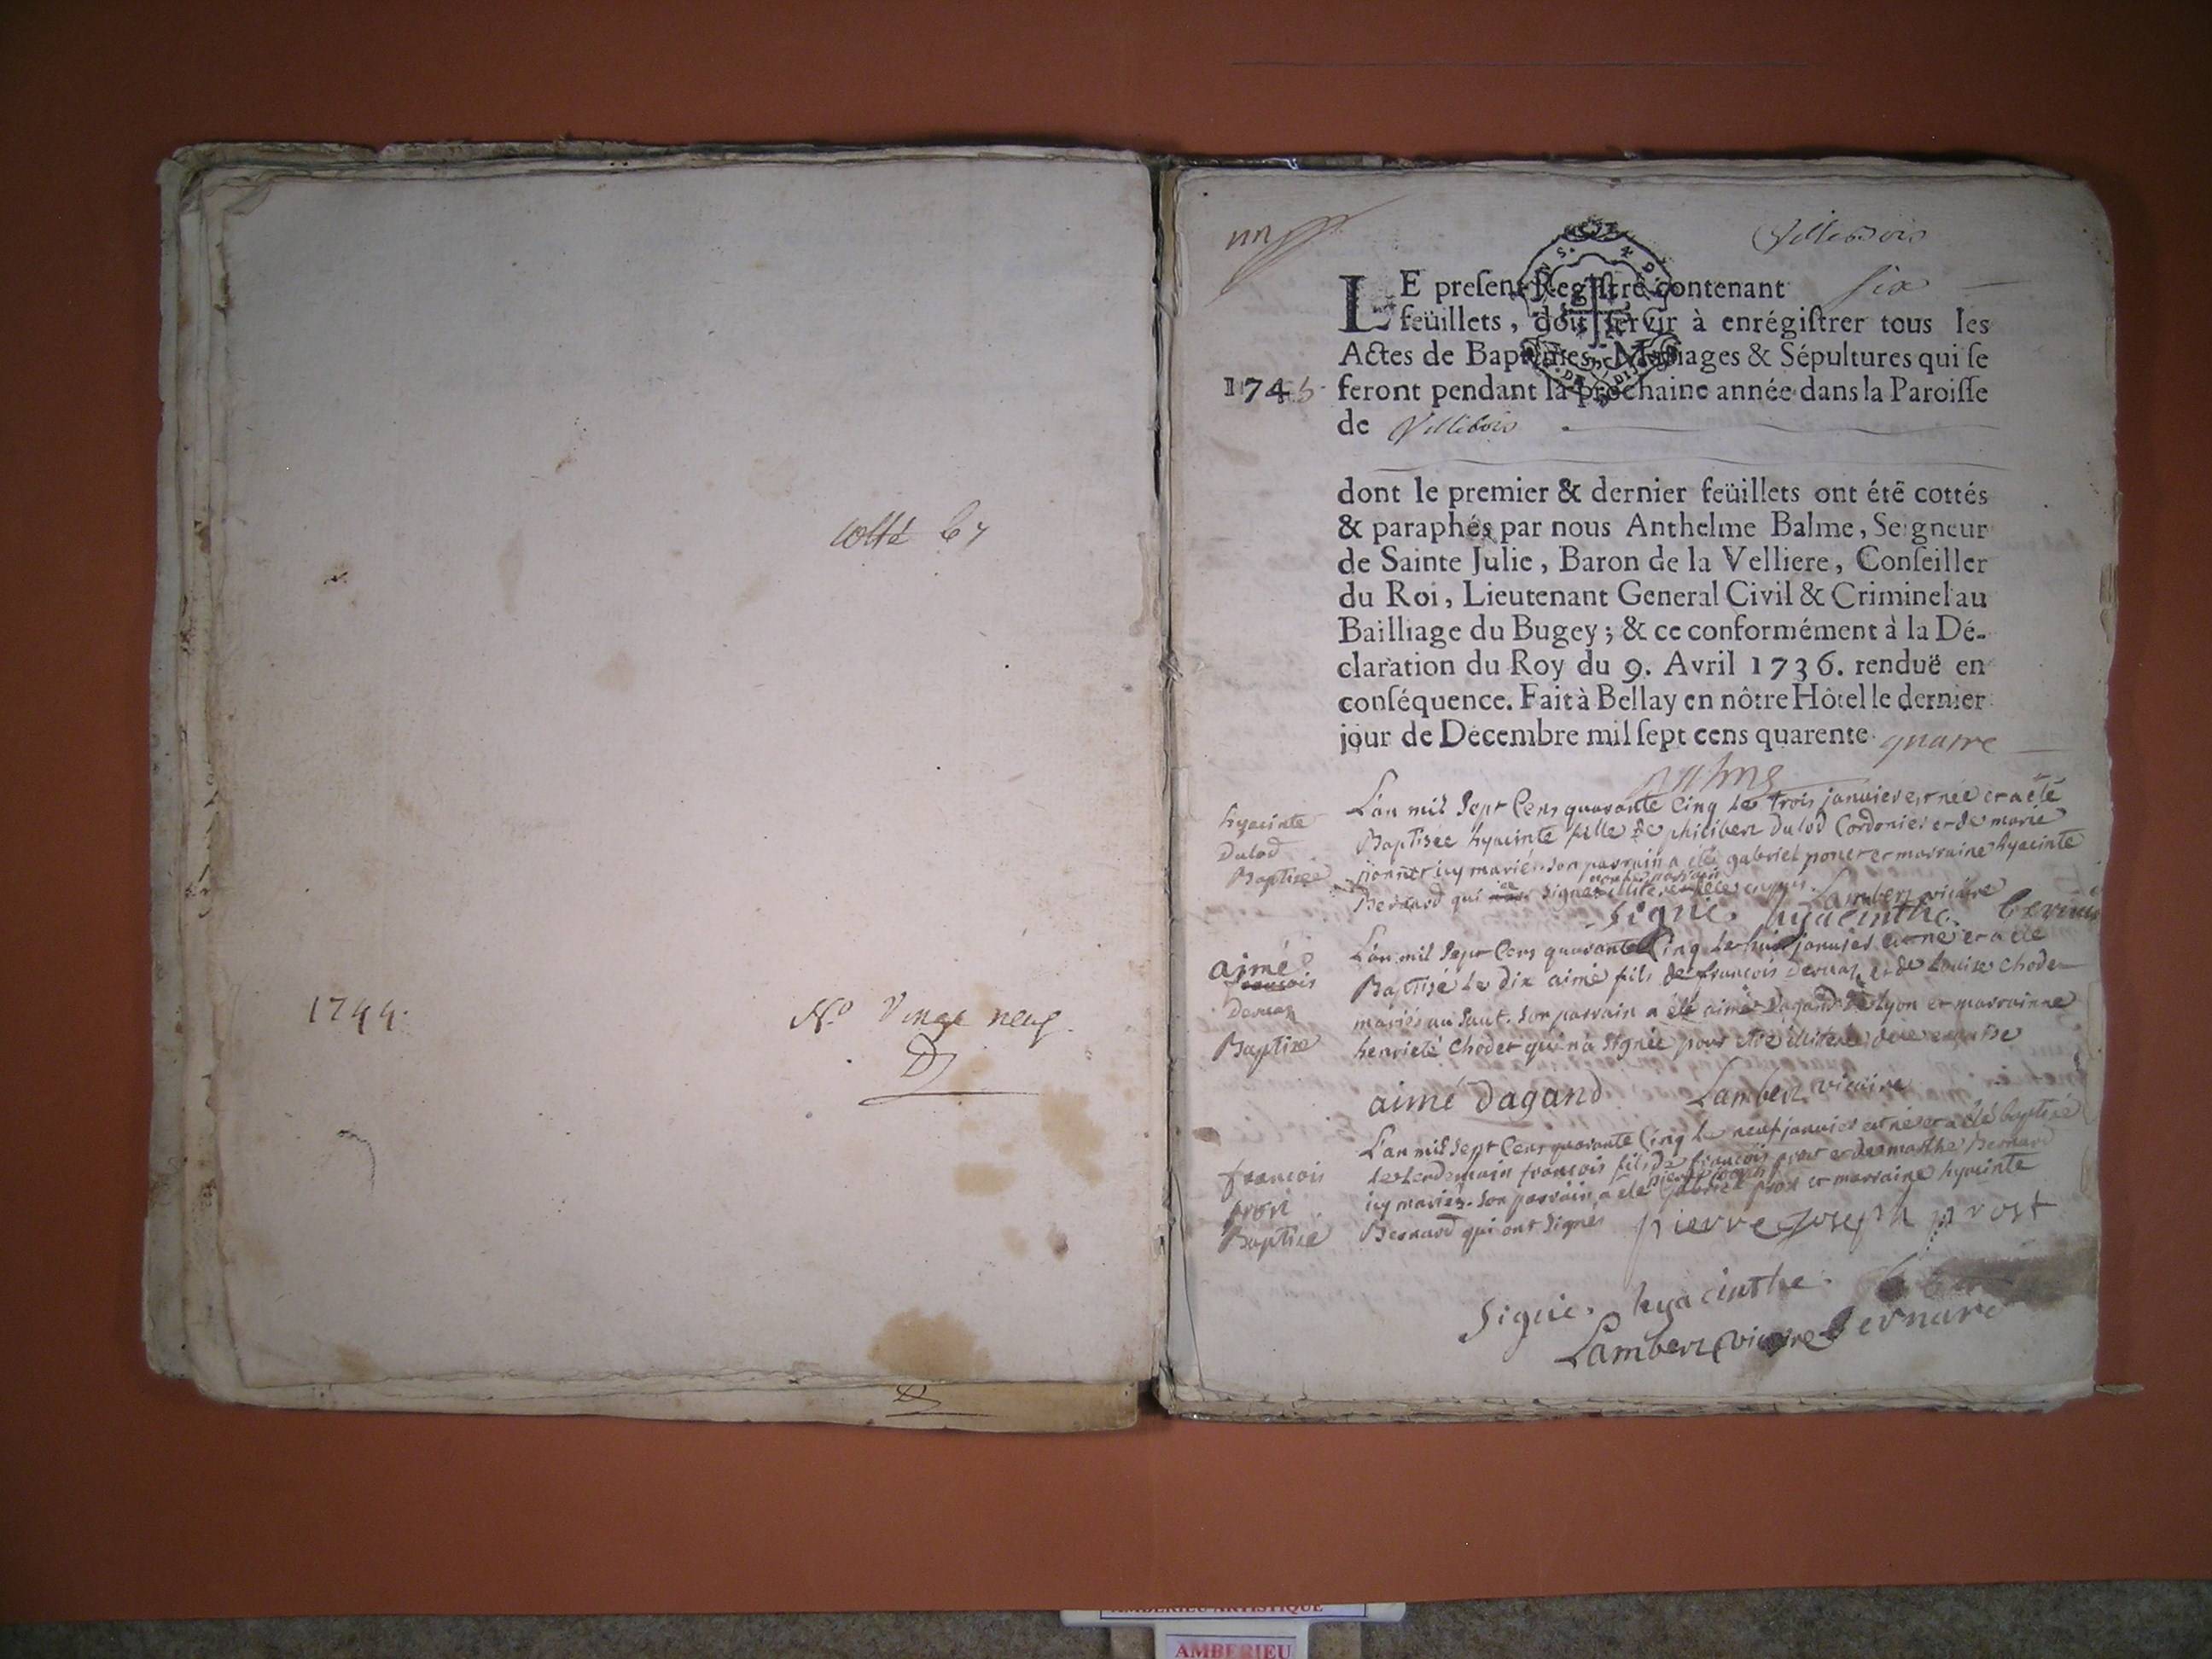 cotté 67
1744.
N.o Vingt neuf.
un
Villebois
LE preſent Regiſtre contenant six
feüillets, doit ſervir à enrégiſtrer tous les
Actes de Baptêmes, Mariages & Sépultures qui ſe
1745 feront pendant la prochaine année dans la Paroiſſe
de Villebois
dont le premier & dernier feüillets ont été cottés
& paraphés par nous Anthelme Balme, Seigneur
de Sainte Julie, Baron de la Velliere, Conſeiller
du Roi, Lieutenant General Civil & Criminel au
Bailliage du Bugey ; & ce conformément à la Dé-
claration du Roy du 9. Avril 1736. renduë en
conſéquence. Fait à Bellay en nôtre Hôtel le dernier
jour de Décembre mil ſept cens quarente quatre
Balme
hyacinte
Dulod
Baptisée
L'an mil Sept Cens quarante Cinq le trois janvier est née et a été
Baptisée hyacinte fille de philibert Dulod Cordonier et de marie
icy mariés. son parrain a été gabriel et marraine hyacinte
Bernard qui signé Lambert vicaire
signie. hyacinthe.
aimé
françois
Dervaz
Baptise
L'an mil Sept Cens quarante Cinq le huit janvier est né et a été
Baptisé le dix aimé fils de françois Dervaz et de Louise Chodet
mariés au Saut. son parrain a été aimé Dagand de Lyon et marrainne
henrieté Chodet qui n'a signée pour etre illiterée de ce enquise
aimé dagand Lambert vicaire
françois
prost
Baptisé
L'an mil Sept Cens quarante Cinq le neuf janvier est né et a été baptisé
le Lendemain françois fils de françois prost et de marthe Bernard
pierre joseph
icy mariés. son parrain a été gabriel prost et marraine hyacinte
Bernard qui ont signés pierre joseph prost
signie. hyacinthe.
Lambert vicaire bernard
AMBERIEU ARTISTIQUE
AMBERIEU